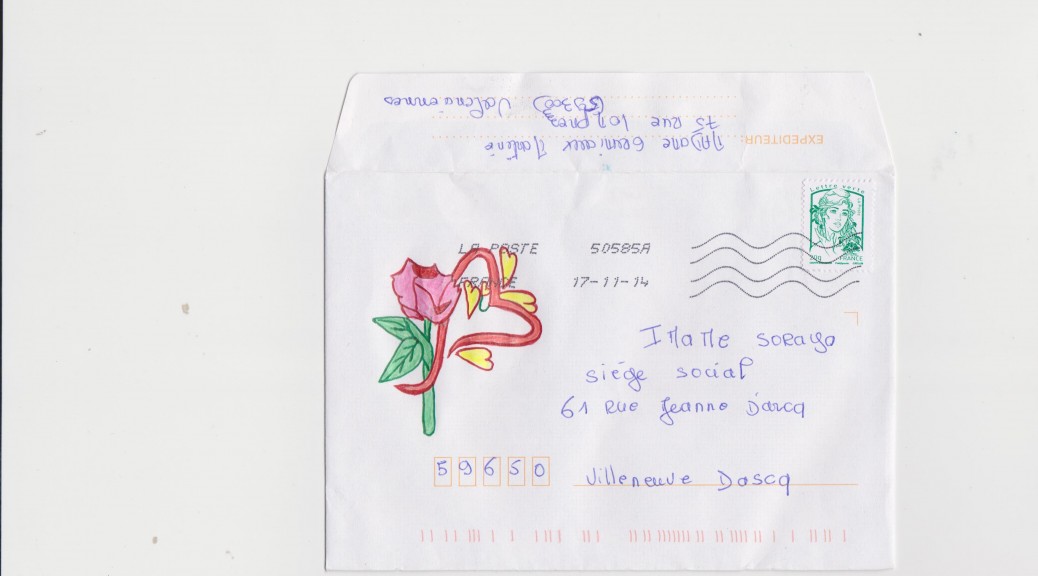 EXPEDITEUR: MADame
75 Rue
(59300) Valenciennes
Lettre verte
20g FRANCE
LA POSTE 50585A
FRANCE 17-11-14
IMaMe SORaya
siége social
61 Rue Jeanne D'arcq
59650 Villeneuve Dascq